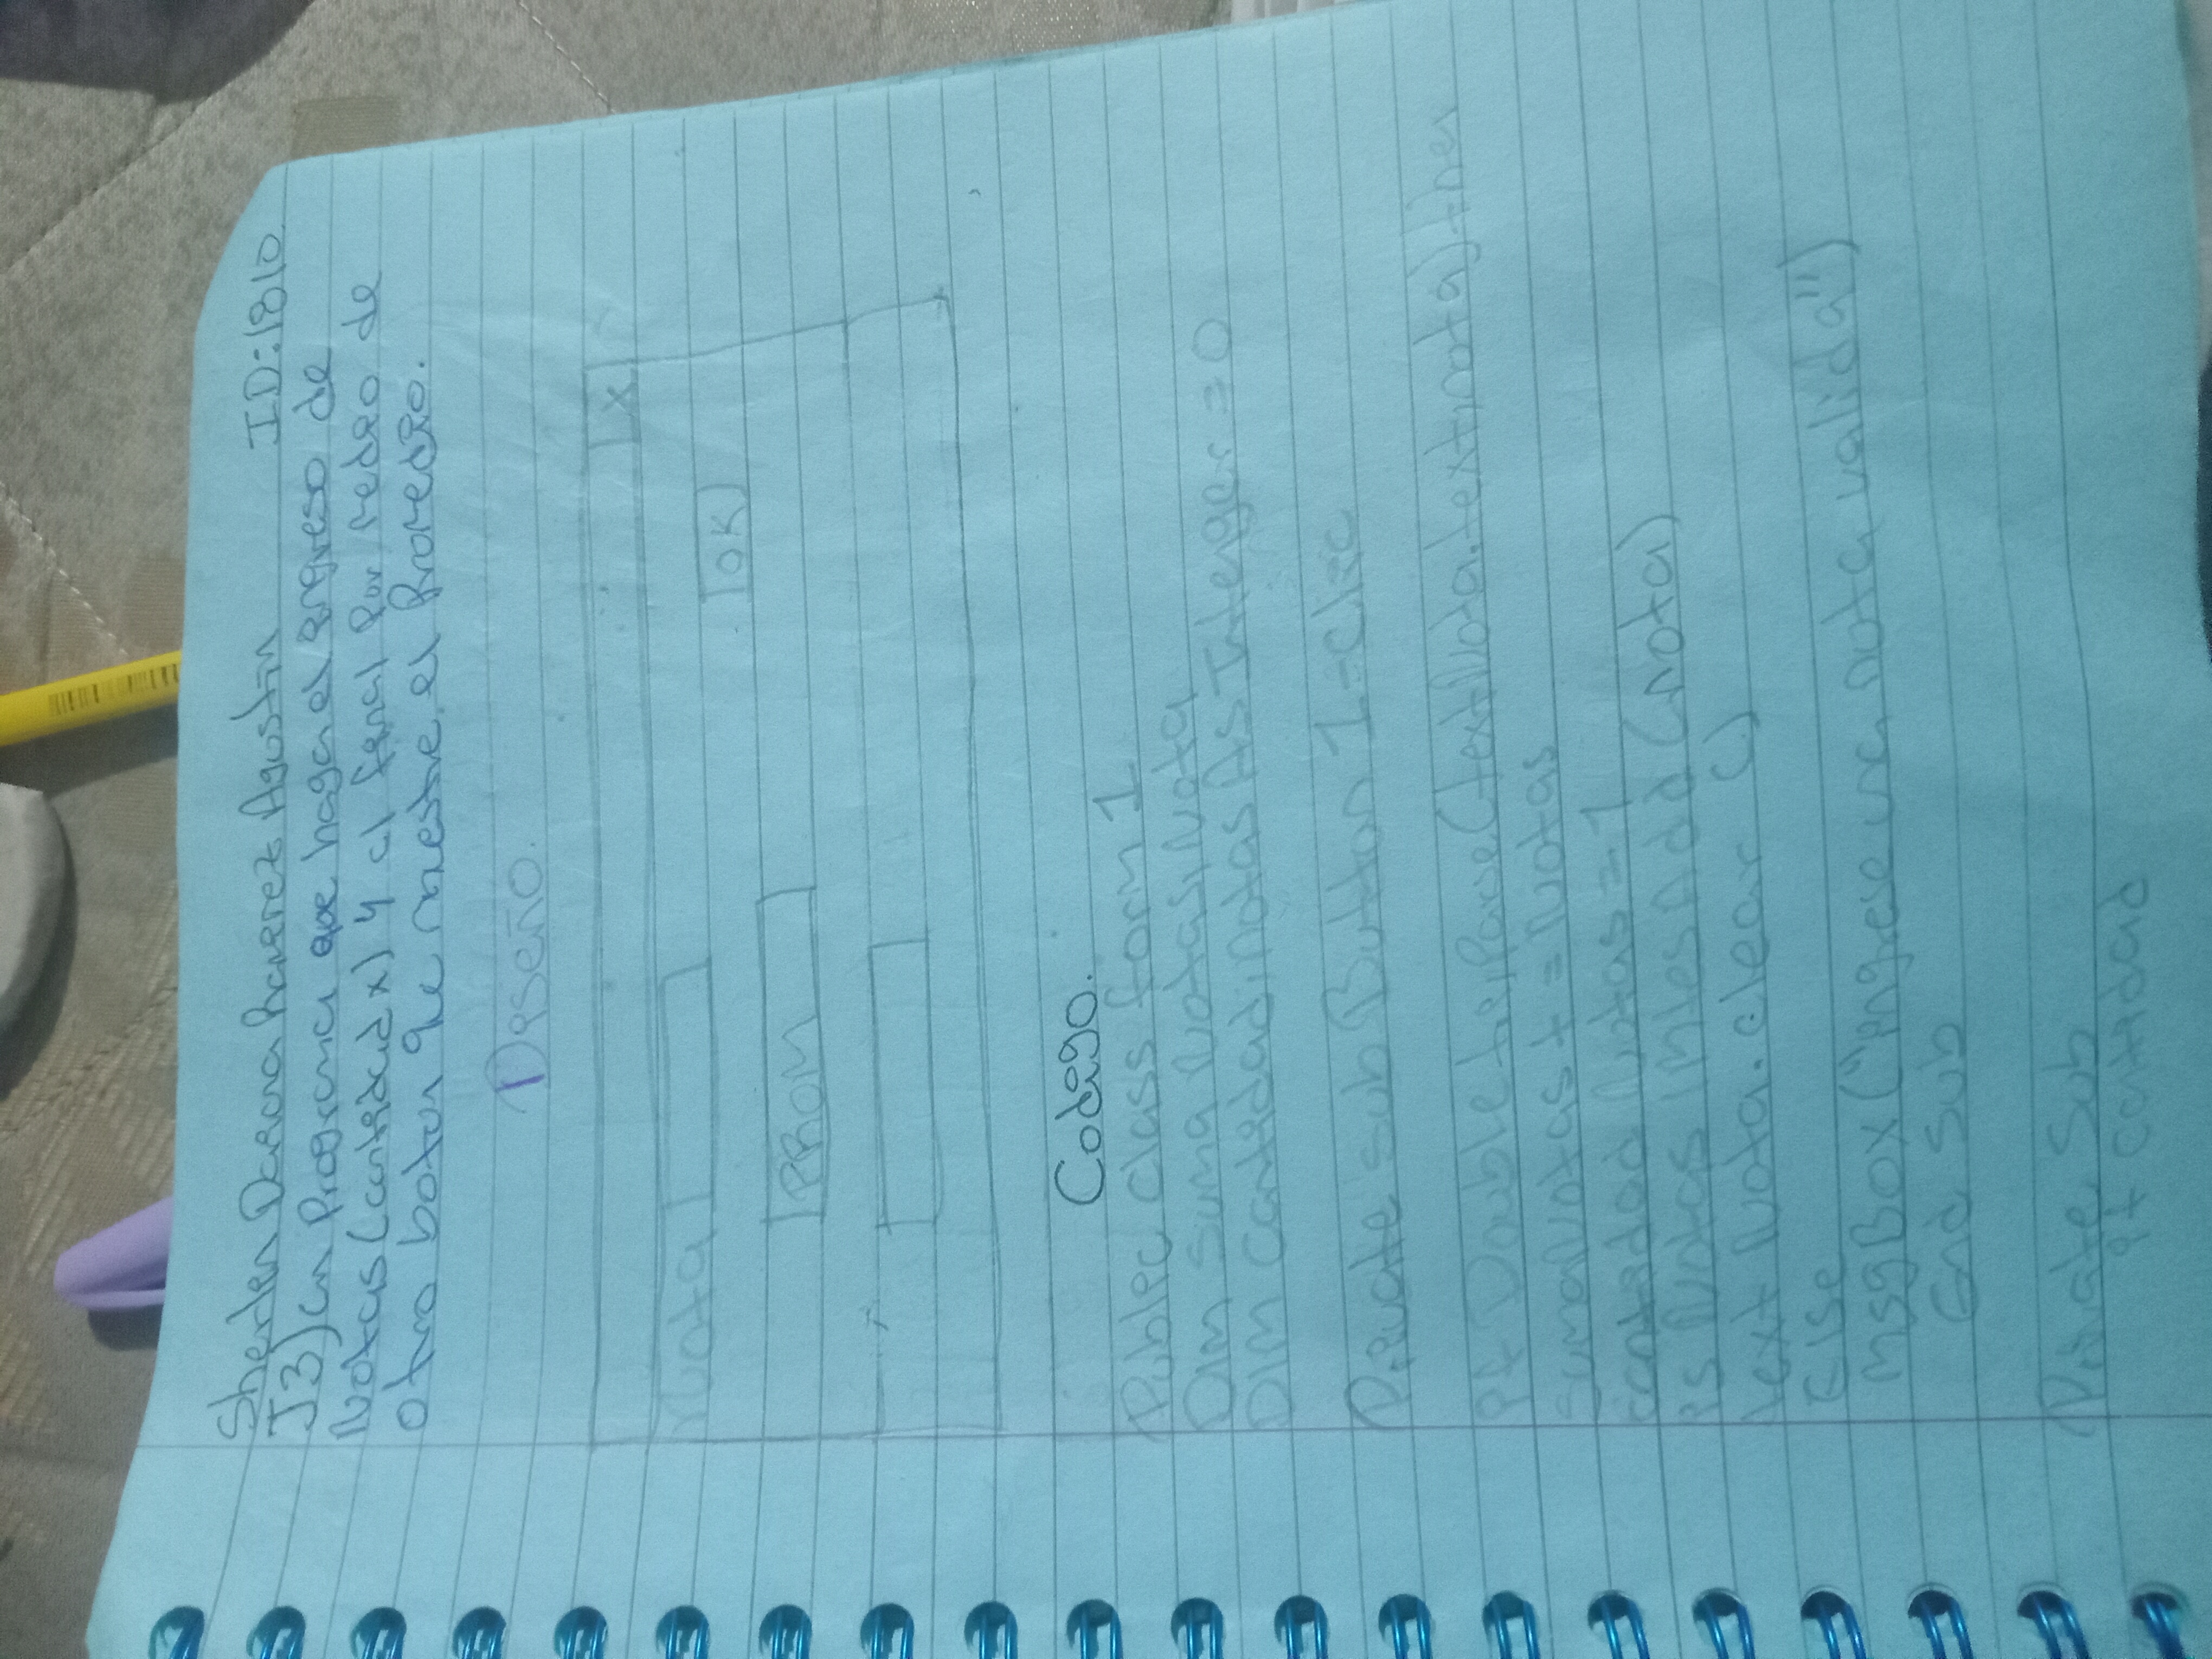 Sherlen Daiana Ramirez Agustin ID:1810.
J3) un programa que haga el ingreso de
Notas (cantidad x) y al final por medio de
otro boton que muestre el promedio.
Diseño.
X
Nota OK
PROM
Codigo.
Public class form 1
Dim suma Notas, Nota
Dim cantidad, notas As Intenger = 0
Private sub Button 1-clic
if Double.tai,Parse(textNota.text,nota) then
sumaNotas + = Notas
cantidad Notas = 1
is Notas Add (nota)
text Nota. clear ()
Else
msg Box ("ingrese una nota valida")
End Sub
Private Sub
if cantidad